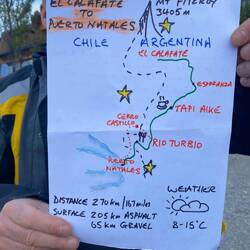 EL CALAFATE
TO
PUERTO NATALES
MT FITZROY
3405m
CHILE
ARGENTINA
EL CALAFATE
ESPERANZA
TAPI AIKE
CERRO
CASTILLO
RIO TURBIO
PUERTO
NATALES
DISTANCE 270km/167miles
SURFACE 205km ASPHALT
65km GRAVEL
WEATHER
8-15°C